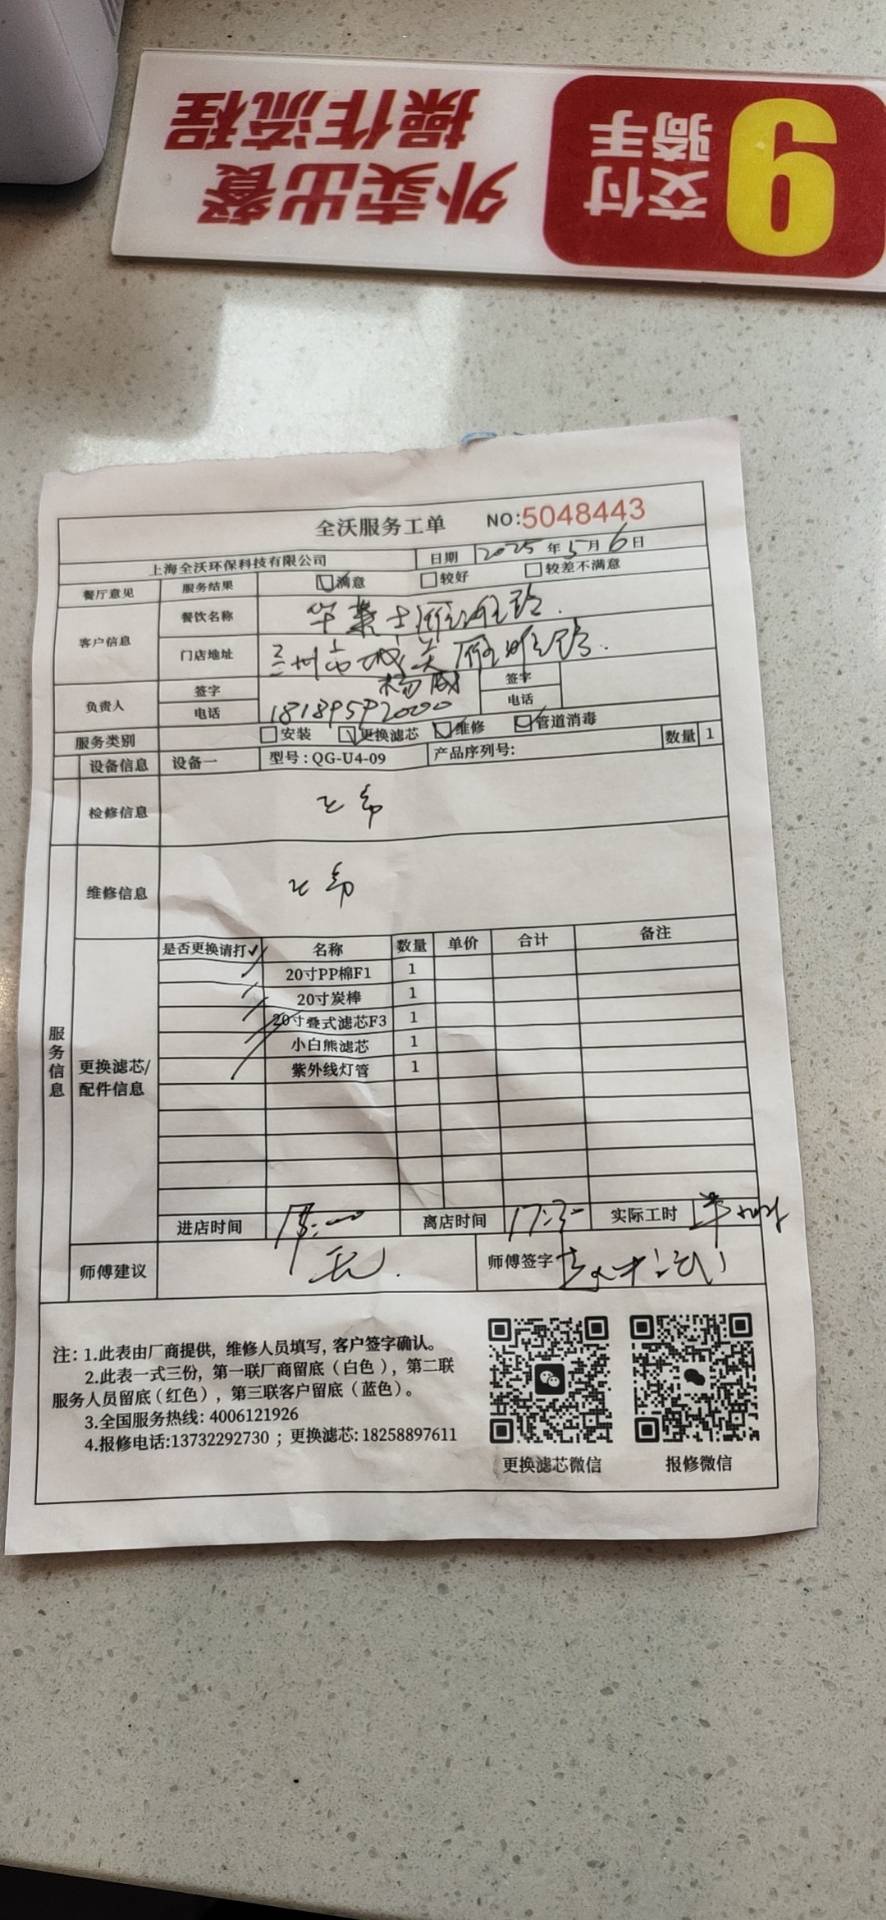 外卖出餐
操作流程
交付
骑手
9
全沃服务工单 NO:5048443
上海全沃环保科技有限公司 日期 2025年5月6日
餐厅意见 服务结果 满意 较好 较差不满意
客户信息 餐饮名称 华莱士
门店地址 兰州市城关
负责人 签字 杨威 签字
电话 18189592000 电话
服务类别 安装 更换滤芯 维修 管道消毒
设备信息 设备一 型号:QG-U4-09 产品序列号: 数量 1
检修信息 正常
维修信息 正常
服务信息
更换滤芯/配件信息
是否更换请打✓ 名称 数量 单价 合计 备注
20寸PP棉F1 1
20寸炭棒 1
20寸叠式滤芯F3 1
小白熊滤芯 1
紫外线灯管 1
进店时间 离店时间 17:30 实际工时
师傅建议 无. 师傅签字
注: 1.此表由厂商提供, 维修人员填写, 客户签字确认。
2.此表一式三份, 第一联厂商留底(白色), 第二联
服务人员留底(红色), 第三联客户留底(蓝色)。
3.全国服务热线: 4006121926
4.报修电话:13732292730 ; 更换滤芯: 18258897611
更换滤芯微信 报修微信